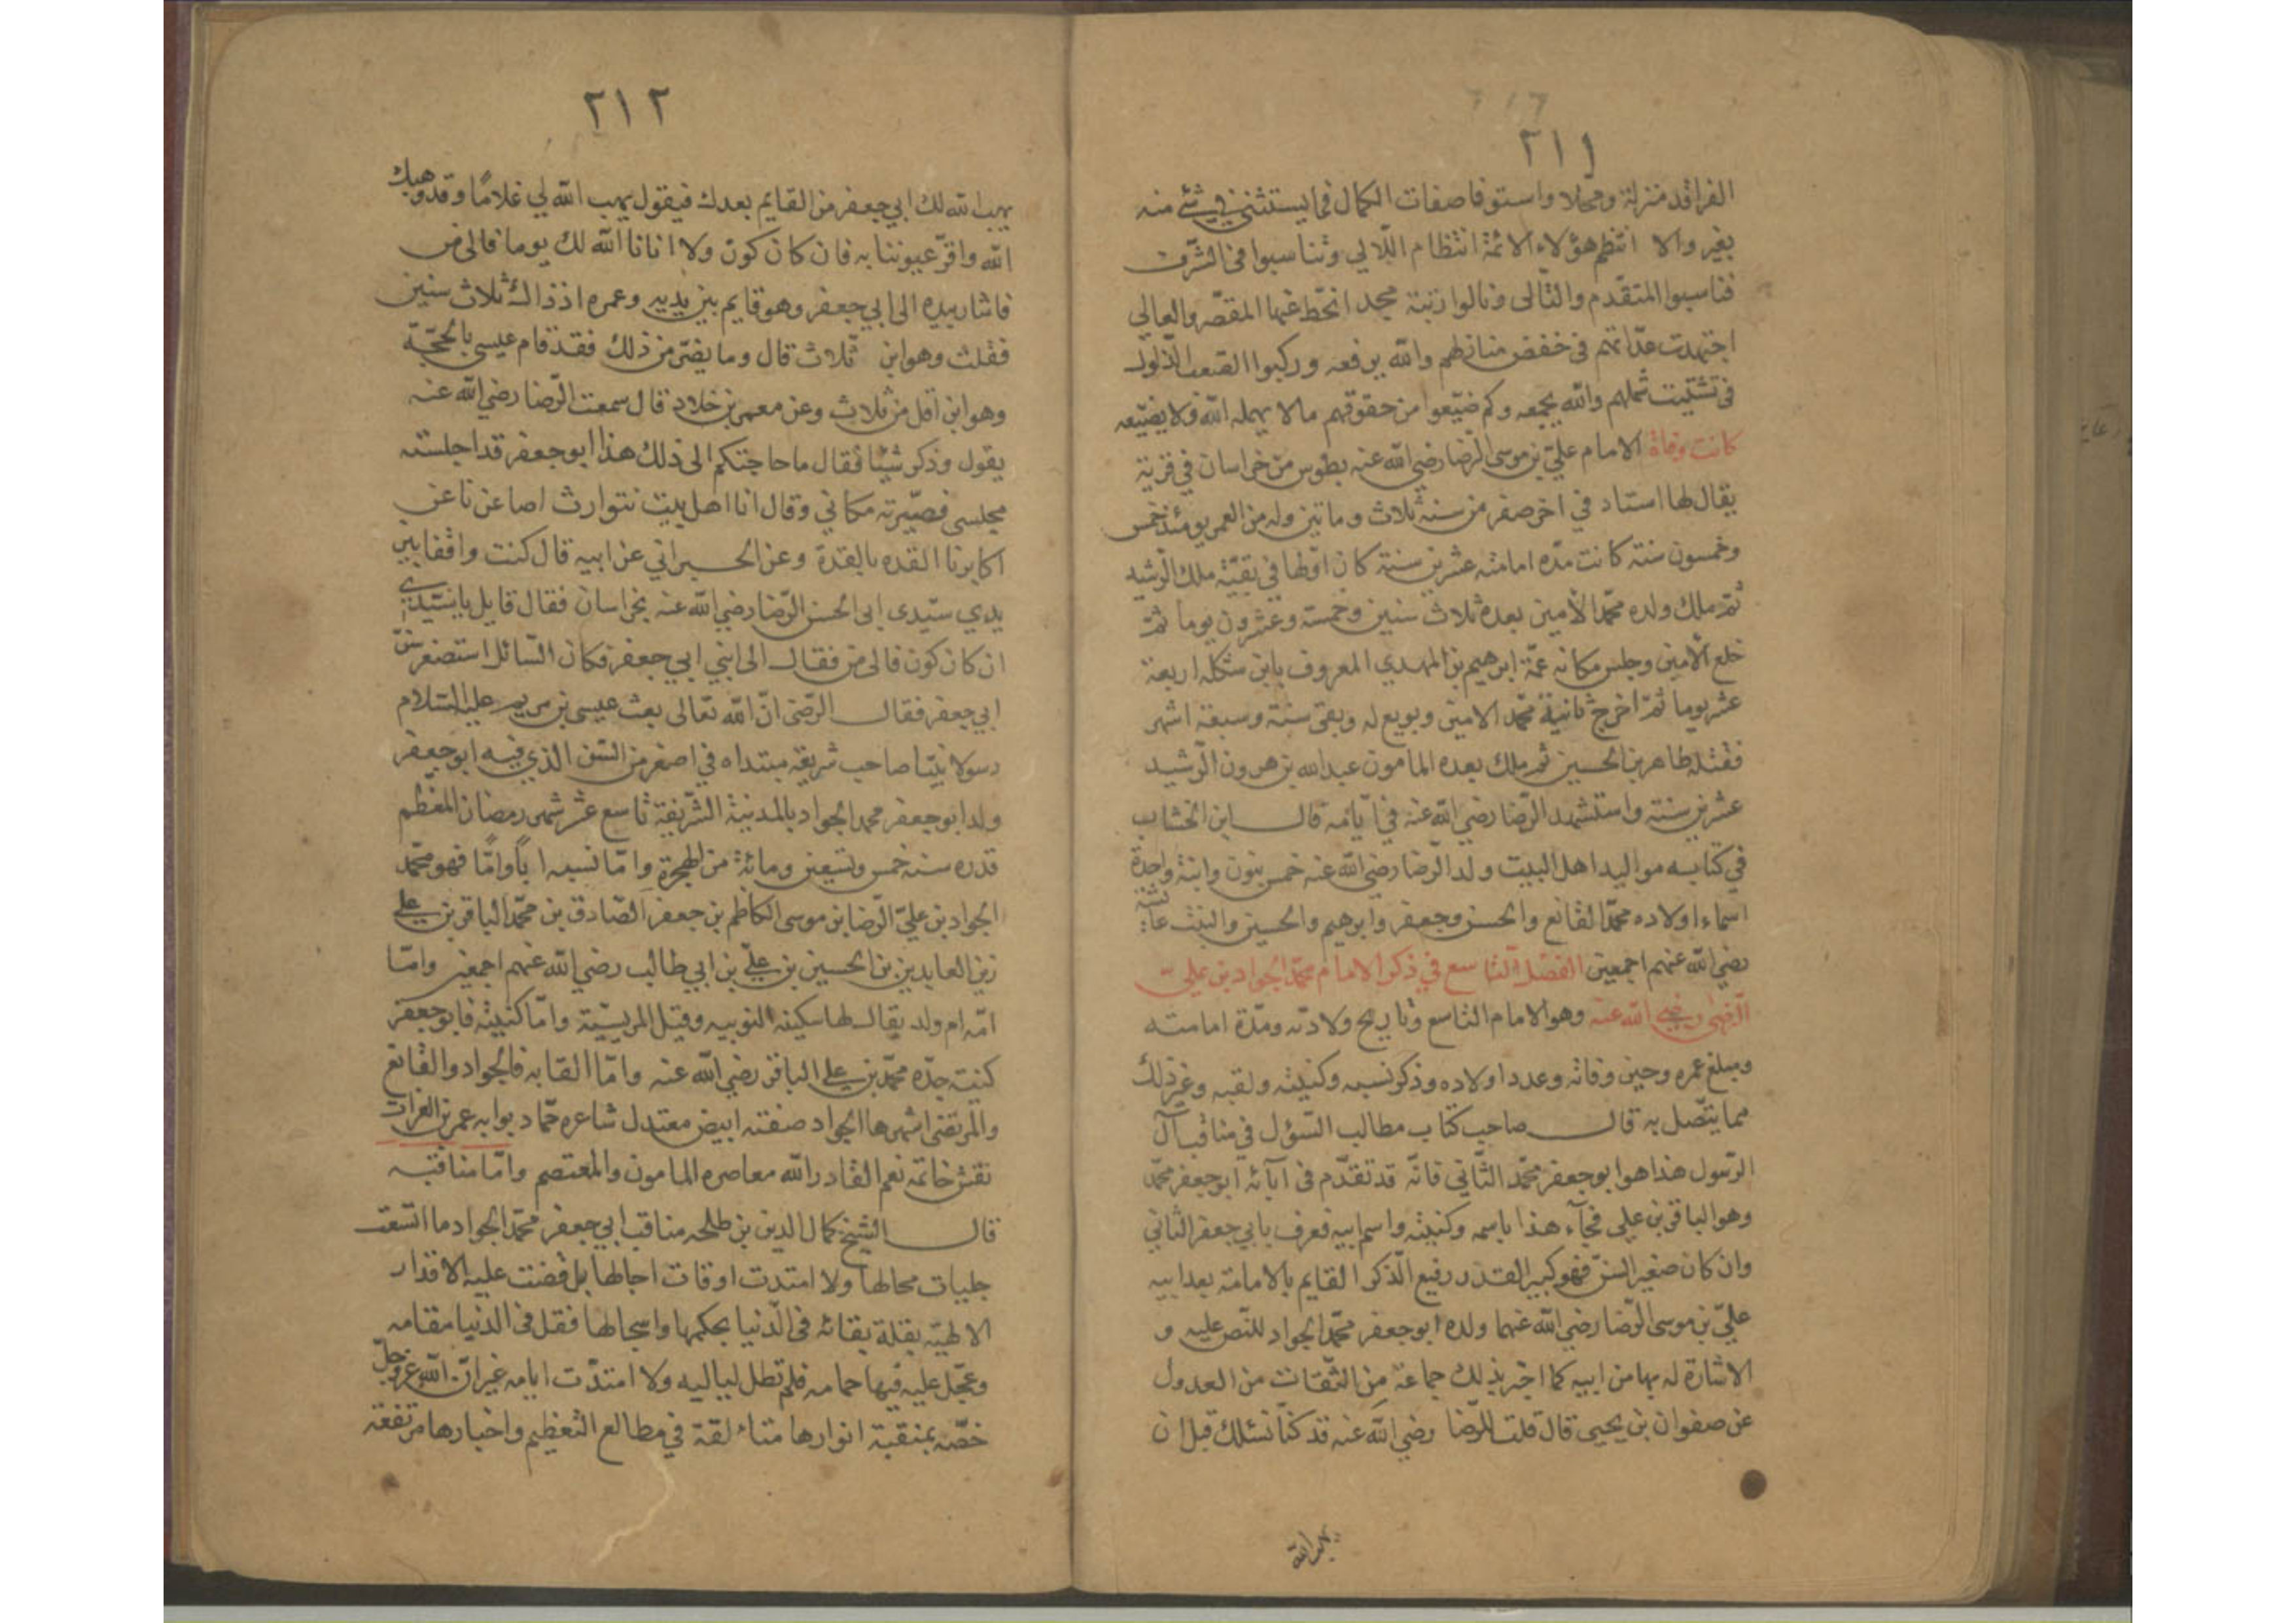 ٢١١
الفراقد منزلة ومحلا واستوفا صفات الكمال فما يستثنى في شئ منه
بغير والا انتظم هؤلاء الائمة انتظام اللآلي وتناسبوا في الشرف
فتاسبوا المتقدم والتالى ونالوا رتبة مجد انحط عنها المقصر والعالي
اجتهدت عداتهم في خفض منازلهم والله يرفعه وركبوا الصعب الذلول
في تشتيت شملهم والله يجمعه وكم ضيعوا من حقوقهم مالا يهمله الله ولا يضيعه
كانت وفاة الامام علي بن موسى الرضا رضي الله عنه بطوس من خراسان في قرية
يقال لها استاد في اخر صفر من سنة ثلاث وماتين وله من العمر يومئذ خمس
وخمسون سنة كانت مدة امامته عشرين سنة كان اولها في بقية ملك الرشيد
ثم ملك ولده محمد الأمين بعده ثلاث سنين وخمسة وعشرون يوما ثم
خلع الأمين وجلس مكانه عمه ابرهيم بن المهدي المعروف بابن شكله اربعة
عشر يوما ثم اخرج ثانية محمد الامين وبويع له وبقى سنة وسبعة اشهر
فقتله طاهر بن الحسين ثم ملك بعده المامون عبد الله بن هرون الرشيد
عشرين سنة واستشهد الرضا رضي الله عنه في ايامه قال ابن الخشاب
في كتابه مواليد اهل البيت ولد الرضا رضي الله عنه خمس بنون وابنة واحدة
اسماء اولاده محمد القانع والحسن وجعفر وابرهيم والحسين والبنت عائشة
رضي الله عنهم اجمعين الفصل التاسع في ذكر الامام محمد الجواد بن علي
الرضى رضي الله عنه وهو الامام التاسع وتاريخ ولادته ومدة امامته
ومبلغ عمره وحين وفاته وعدد اولاده وذكر نسبه وكنيته ولقبه وغير ذلك
مما يتصل به قال صاحب كتاب مطالب السؤل في مناقب آل
الرسول هذا هو ابو جعفر محمد الثاني فانه قد تقدم في آبائه ابو جعفر محمد
وهو الباقر بن علي فجآء هذا باسمه وكنيته واسم ابيه فعرف بابي جعفر الثاني
وان كان صغير السن فهو كبير القدر رفيع الذكر القايم بالامامة بعد ابيه
علي بن موسى الرضا رضي الله عنهما ولده ابو جعفر محمد الجواد للنص عليه و
الاشارة له بها من ابيه كما اخبر بذلك جماعة من الثقات من العدول
عن صفوان بن يحيى قال قلت للرضا رضي الله عنه قد كنا نسئلك قبل ان
يهب الله
٢١٢
يهب الله لك ابي جعفر من القايم بعدك فيقول يهب الله لي غلاما وقد وهبك
الله واقر عيوننا به فان كان كون ولا انانا الله لك يوما فالى من
فاشار بيده الى ابي جعفر وهو قايم بين يديه وعمره اذ ذاك ثلاث سنين
فقلت وهو ابن ثلاث قال وما يضر من ذلك فقد قام عيسى بالحجة
وهو ابن اقل من ثلاث وعن معمر بن خلاد قال سمعت الرضا رضي الله عنه
يقول وذكر شيئا فقال ما حاجتكم الى ذلك هذا ابو جعفر قد اجلسته
مجلسى فصيرته مكاني وقال انا اهل بيت نتوارث اصاغرنا عن
اكابرنا القده بالقدة وعن الحسبراني عن ابيه قال كنت واقفا بين
يدي سيدى ابى الحسن الرضا رضي الله عنه بخراسان فقال قايل يا سيدي
ان كان كون فالى من فقال الى ابني ابي جعفر فكان السائل استصغر سن
ابي جعفر فقال الرضى ان الله تعالى بعث عيسى بن مريم عليه السلام
رسولا نبيا صاحب شريعة مبتداه في اصغر من السن الذي فيه ابو جعفر
ولد ابو جعفر محمد الجواد بالمدينة الشريفة تاسع عشر شهر رمضان المعظم
قدره سنة خمس وتسعين ومائة من الهجرة واما نسبه ابا واما فهو محمد
الجواد بن علي الرضا بن موسى الكاظم بن جعفر الصادق بن محمد الباقر بن علي
زين العابدين بن الحسين بن علي بن ابي طالب رضي الله عنهم اجمعين واما
امه ام ولد يقال لها سكينه النوبيه وقيل المريسية واما كنيته فابو جعفر
كنيته جده محمد بن علي الباقر رضي الله عنه واما القابه فالجواد والقانع
والمرتضى اشهرها الجواد صفته ابيض معتدل شاعره حماد بوابه عمر بن الفرات
نقش خاتمه نعم القادر الله معاصره المامون والمعتصم واما مناقبه
قال الشيخ كمال الدين بن طلحه مناقب ابي جعفر محمد الجواد ما اتسعت
جلبات مجالها ولا امتدت اوقات اجالها بل قضت عليه الاقدار
الالهية بقلة بقائه في الدنيا بحكمها واسجالها فقل في الدنيا مقامه
وعجل عليه فيها حمامه فلم تطل لياليه ولا امتدت ايامه غير ان الله عز وجل
خصه بمنقبة انوارها متاءلقة في مطالع التعظيم واخبارها مرتفعة